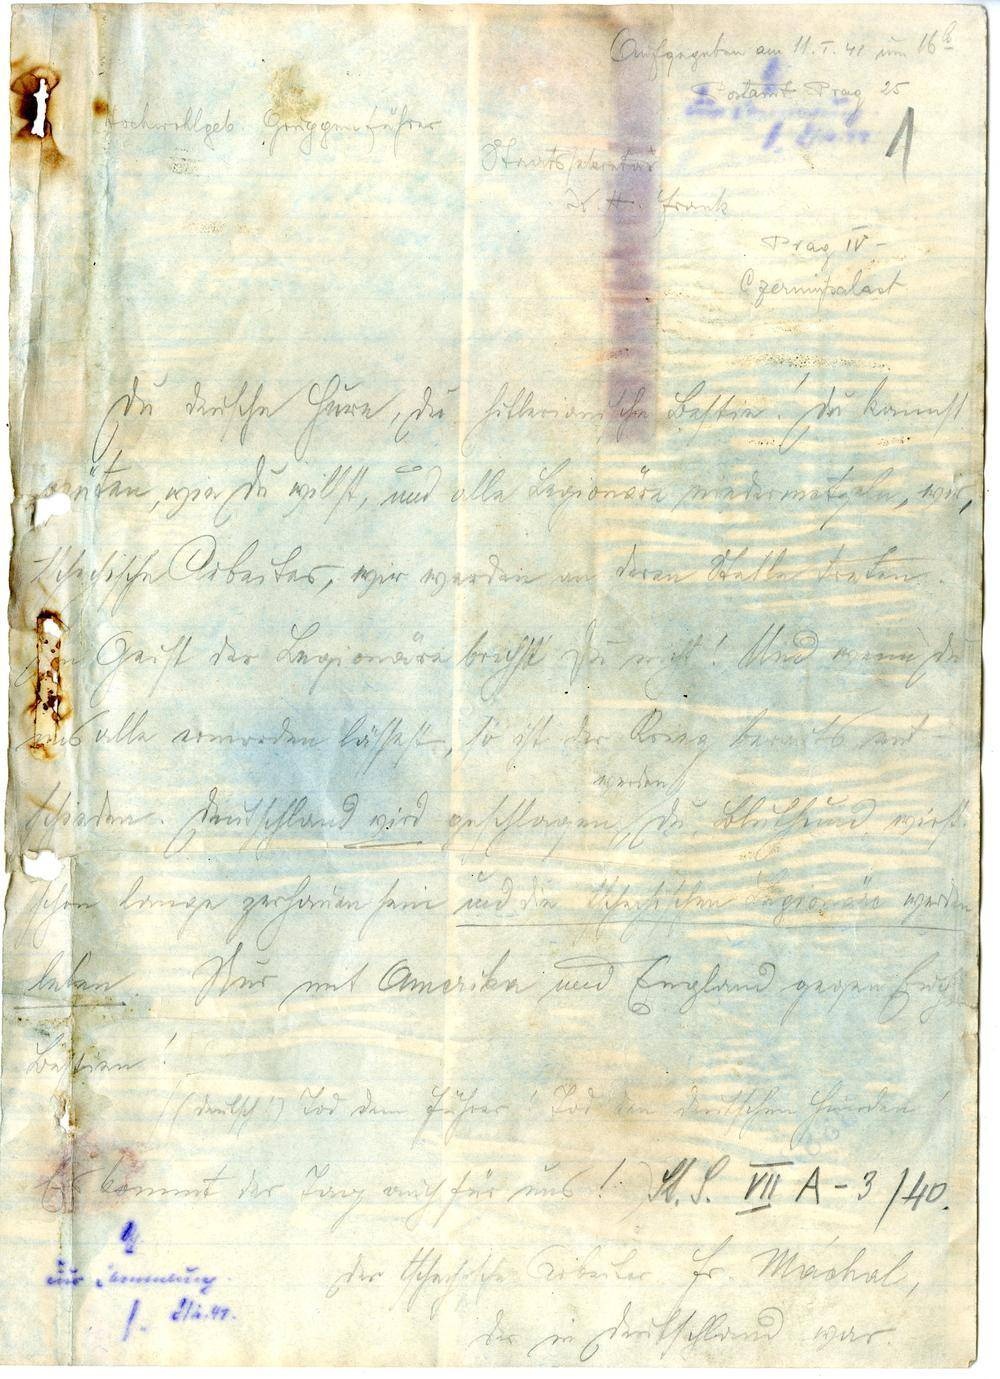 Aufgegeben am 11.I.41 um 16h
Postamt Prag 25
1
Hochwohlgeb. Gruppenführer
Staatssekretär
K. H. Frank
Prag IV -
Czerninpalast
Du deutsche Hure, du hitlerionische Bestie! Du kannst
wüten, wie Du willst, und alle Legionäre niedermetzeln, wir,
tschechische Arbeiter, wir werden an deren Stelle treten.
Geist der Legionäre brichst Du nicht! Und wenn du
uns alle ermorden lässest, so ist der Krieg bereits ent-
werden
schieden. Deutschland wird geschlagen, Du, Bluthund, wirst
schon lange zerhauen sein und die tschechischen Legionäre werden
leben. Nur mit Amerika und England gegen Euch
Bestien!
(deutsch!) Tod dem Führer! Tod den deutschen Hunden!
Es kommt der Tag auch für uns! St. S. VII A - 3/40.
der tschechische Arbeiter Fr. Máchal,
der in Deutschland war.
zur Sammlung.